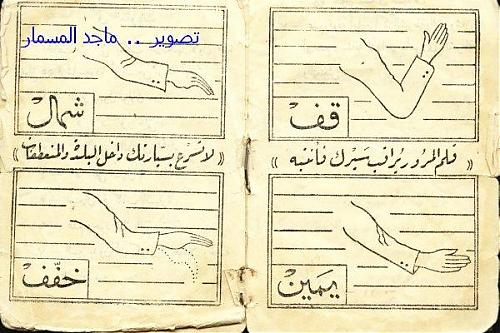 تصوير .. ماجد المسمار
قف
« قلم المرور يراقب سيرك فانتبه »
يمين
شمال
« لا تسرع بسيارتك داخل البلد والمنعطفات »
خفّف